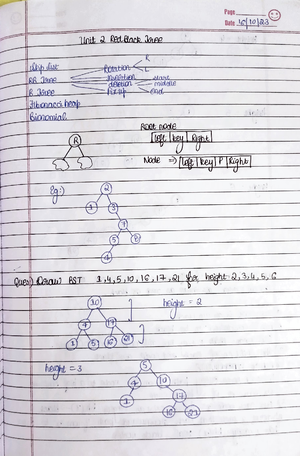 Page
Date 16/10/23
Unit 2 Red Black Tree
Skip list
Rotation R
L
RB Tree insertion start
deletion middle
B Tree fix up end
Fibonacci heap
Binomial
Root node
left | key | Right
R
Node ⇒ left | key | P | Right
Eg:
2
1 3
7
5 8
4
Ques) Draw BST 1,4,5,10,16,17,21 for height 2,3,4,5,6
10
height = 2
4 17
1 5 16 21
height = 3
5
4 10
1 17
16 21